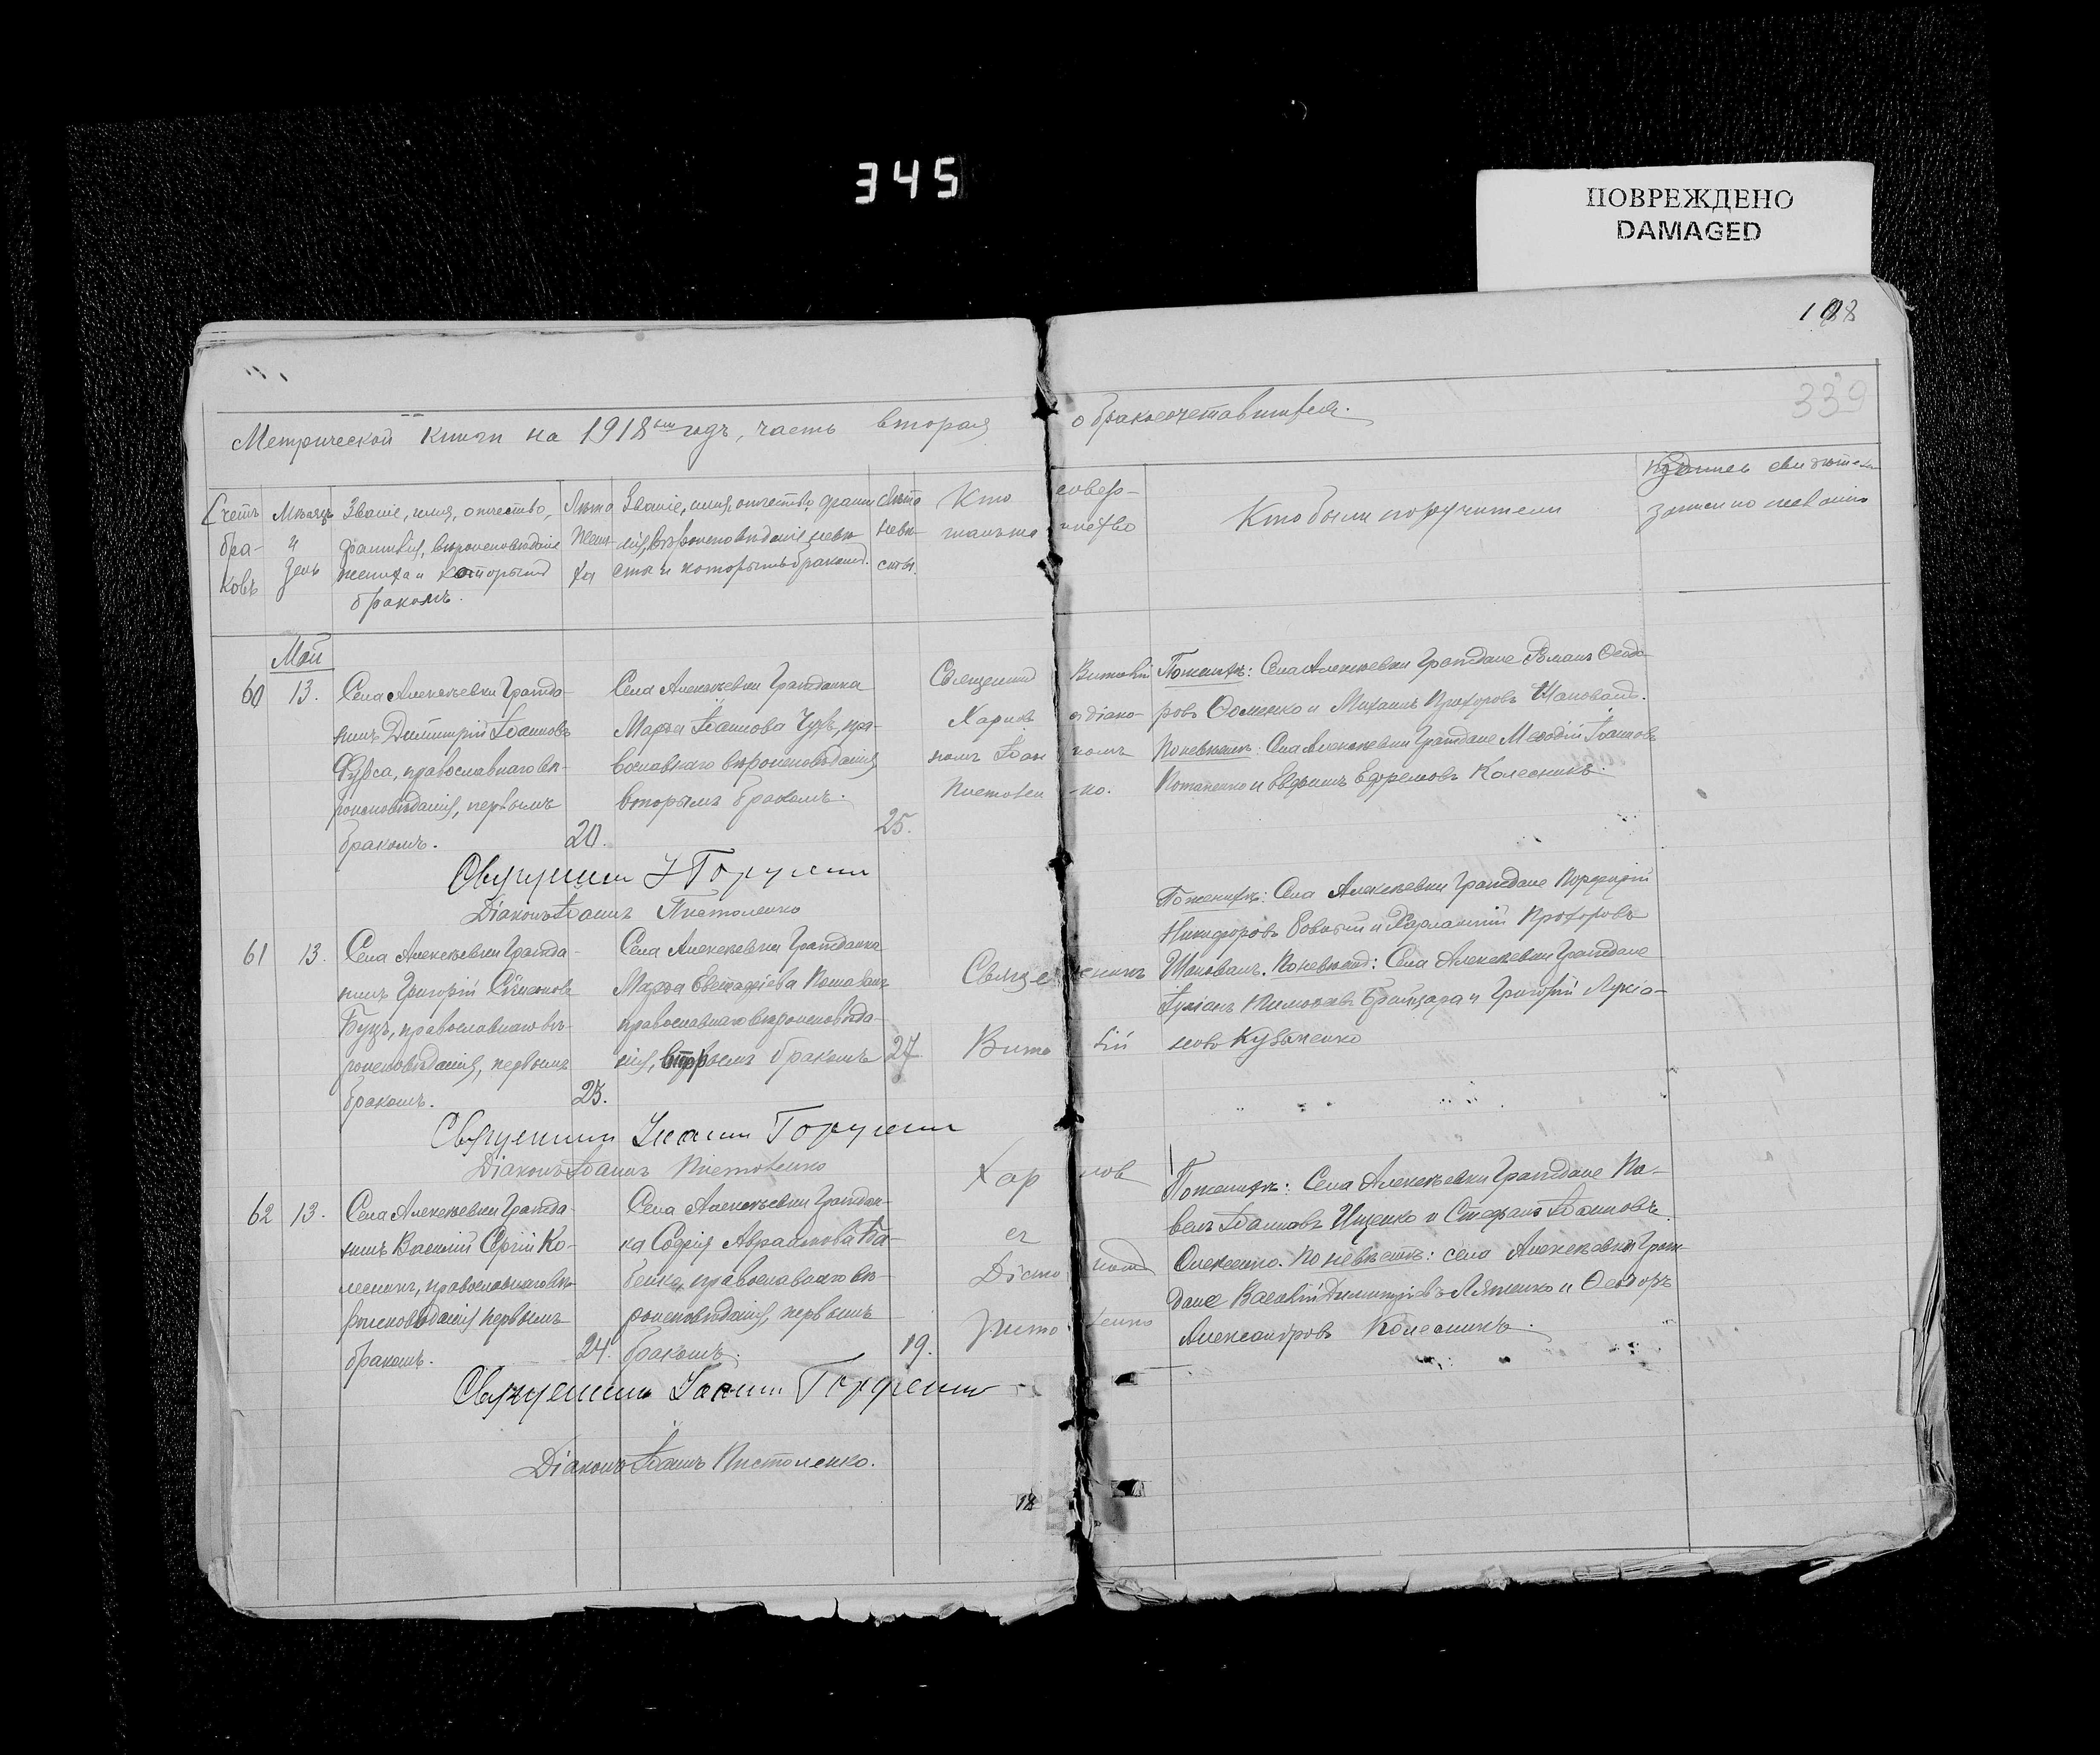 345
ПОВРЕЖДЕНО
DAMAGED
188
339
Метрической книги на 1918 годъ, часть вторая о бракосочетавшихся.
Счетъ браковъ
Мѣсяцъ и день
Званіе, имя, отчество, фамилія, вѣроисповѣданіе жениха и которымъ бракомъ.
Лѣта жениха
Званіе, имя, отчество, фамилія, вѣроисповѣданіе невѣсты и которымъ бракомъ.
Лѣта невѣсты.
Кто совершалъ таинство
Кто были поручители
записи по желанію
Май
60
13.
Села Алексѣевки Гражда-
нинъ Димитрій Іоанновъ
Фурса, православнаго вѣ-
роисповѣданія, первымъ
бракомъ.
20.
Села Алексѣевки Гражданка
Марѳа Іоаннова Чубъ, пра-
вославнаго вѣроисповѣданія
вторымъ бракомъ.
25.
Священникъ Виталій
Харковъ діако-
номъ Іоанномъ
Пистоленко.
По женихѣ: Села Алексѣевки Граждане Романъ Ѳеодо-
ровъ Ѳоменко и Михаилъ Прохоровъ Шаповалъ.
По невѣстѣ: Села Алексѣевки Граждане Меѳодій Іоанновъ
Потапенко и Евфимъ Ефремовъ Колесникъ.
Діаконъ Іоаннъ Пистоленко
61
13.
Села Алексѣевки Гражда-
нинъ Григорій Симеоновъ
Буцъ, православнаго вѣ-
роисповѣданія, первымъ
бракомъ.
23.
Села Алексѣевки Гражданка
Марѳа
православнаго вѣроисповѣда-
нія, вторымъ бракомъ
27
Священникъ
Виталій
По женихѣ: Села Алексѣевки Граждане Порфирій
Никифоровъ Ровный и Харлампій Прохоровъ
Шаповалъ. По невѣстѣ: Села Алексѣевки Граждане
и Григорій Лукіа-
новъ Кузьменко
Діаконъ Іоаннъ Пистоленко
62
13.
Села Алексѣевки Гражда-
нинъ Василій Сергій Ко-
лесникъ, православнаго вѣ-
роисповѣданія первымъ
бракомъ.
24.
Села Алексѣевки Граждан-
ка Софія Авраамова Ба-
бенко, православнаго вѣ-
роисповѣданія, первымъ
бракомъ.
19.
Харковъ
съ
Діакономъ
Пистоленко
По женихѣ: Села Алексѣевки Граждане Па-
велъ Іоанновъ Ищенко и Стефанъ Іоанновъ
Олексенко. По невѣстѣ: села Алексѣевки Граж-
дане Василій Димитріевъ Ляшенко и Ѳеодоръ
Александровъ Колесникъ.
Діаконъ Іоаннъ Пистоленко.
18